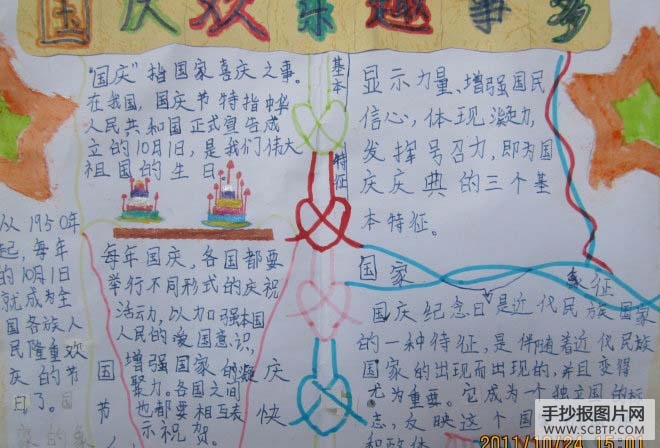 国庆欢乐趣事多
“国庆”指国家喜庆之事。
在我国,国庆节特指中华
人民共和国正式宣告成
立的10月1日,是我们伟大
祖国的生日
基本特征
显示力量、增强国民
信心,体现凝力,
发挥号召力,即为国
庆庆典的三个基
本特征。
从1950年
起,每年
的10月1日
就成为全
国各族人
民隆重欢
庆的节
日了。国
家的象
每年国庆,各国都要
举行不同形式的庆祝
活动,以力加强本国
人民的爱国意识,
增强国家的凝
聚力。各国之间
也都要相互表
示祝贺
国庆
节快
国家象征
国庆纪念日是近代民族国家
的一种特征,是伴随着近代民族
国家的出现而出现的,并且变得
尤为重要。它成为一个独立国的标
志,反映这个国
手抄报图片网
www.SCBTP.COM
2011/10/24 15:01